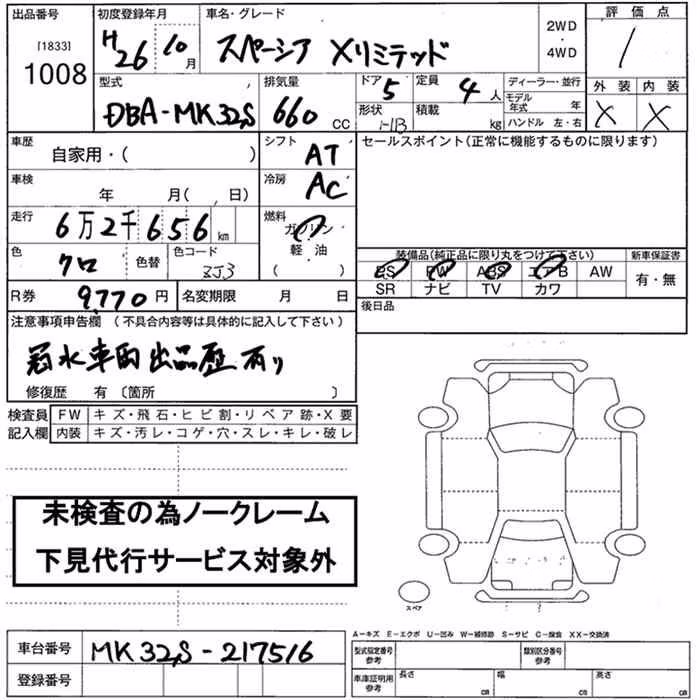 出品番号 初度登録年月 車名・グレード 評価点
[1833] 1008 H26 10月 スペーシア Xリミテッド 2WD・4WD /
型式 排気量 ドア 定員 ディーラー・並行 外装 内装
DBA-MK32S 660 CC 5 4人 モデル年式 年 X X
形状 積載 kg ハンドル 左・右
車歴 シフト セールスポイント(正常に機能するものに限ります)
自家用・( ) AT
車検 冷房
年 月( , 日) AC
走行 燃料
6万2千656km ガソリン
色 色替 色コード 軽油 装備品(純正品に限り丸をつけて下さい) 新車保証書
クロ ZJ3 ( ) PS PW ABS エアB AW 有・無
SR ナビ TV カワ
R券 9,770円 名変期限 月 日 後日品
注意事項申告欄 (不具合内容等は具体的に記入して下さい)
冠水車両出品歴有り
修復歴 有 〔箇所 〕
検査員 FW キズ・飛石・ヒビ割・リペア跡・X要
記入欄 内装 キズ・汚レ・コゲ・穴・スレ・キレ・破レ
未検査の為ノークレーム
下見代行サービス対象外
スペア
A−キズ E−エクボ U−凹み W−補修跡 S−サビ C−腐食 XX−交換済
車台番号 MK32S-217516 型式指定番号 参考 類別区分番号 参考
登録番号 車庫証明用 参考 長さ CM 幅 CM 高さ CM